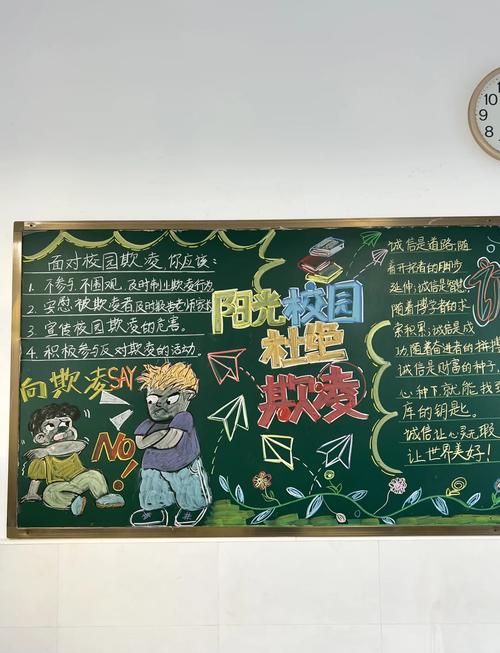 面对校园欺凌,你应该:
1. 不参与,不围观,及时制止欺凌行为
2. 安慰被欺凌者及时报告老师家长
3. 宣传校园欺凌的危害。
4. 积极参与反对欺凌的活动。
向欺凌SAY
NO!
阳光校园
杜绝
欺凌
诚信是道路,随
着开拓者的脚步
延伸;诚信是智慧
随着博学者的求
索积累;诚信是成
功,随着奋进者的拼搏
诚信是财富的种子,
心种下,就能找到
库的钥匙。
诚信让心灵无瑕
让世界美好!
10
9
8